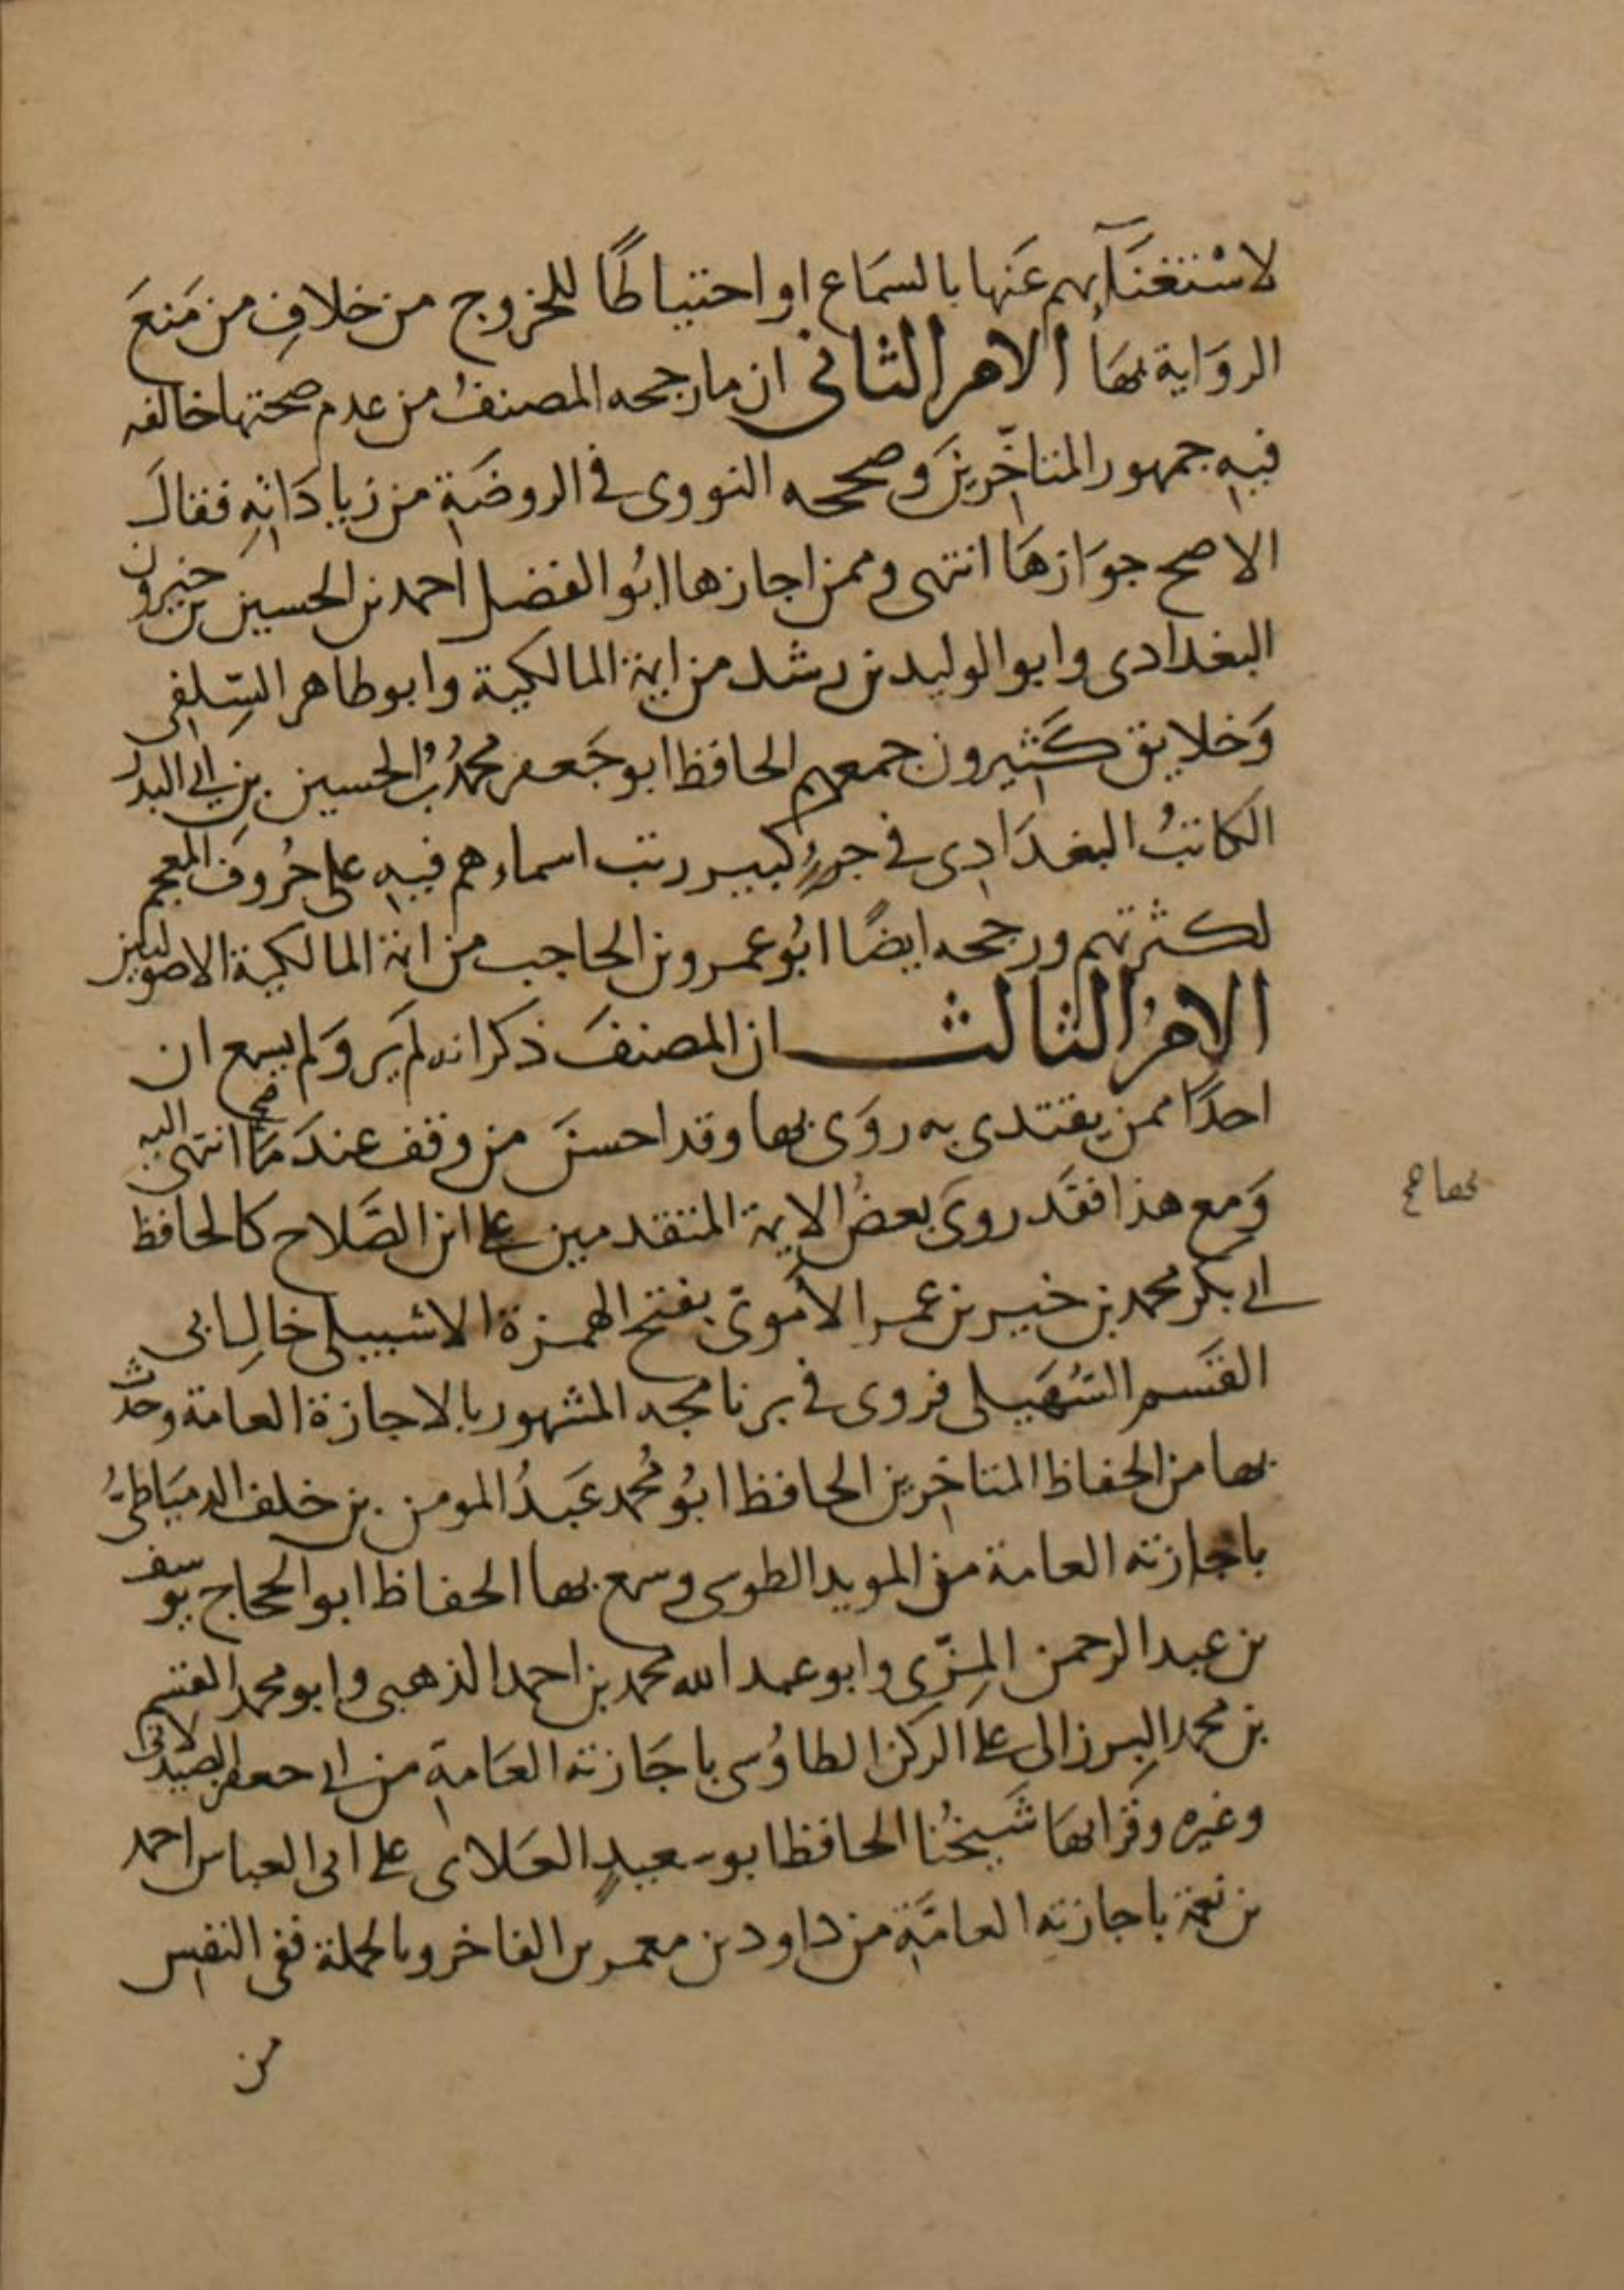 لاسْتغنَآئهم عَنها بالسَماع او احتياطًا للخروج من خلافِ من مَنعَ
الروَاية بهَا الامر الثانى ان ما رجحه المصنفُ من عدم صحتها خالفه
فيه جمهور المتاخّرينَ وصححه النووى فى الروضَة من زيادَاته فقالَ
الاصح جوَازهَا انتهى وممن اجازها ابُو الفضل احمد بن الحسين بن خيرون
البغدادى وابو الوليد بن رشد من ايمة المالكية وابو طاهر السِّلفى
وَخلايق كَثيرون جمعهم الحافظ ابو جَعفر محمدُ بنُ الحسين بن ابى البدر
الكاتبُ البغدَادى فى جزءٍ كبير رتب اسماءهم فيه على حُروف المعجم
لكثرتهم ورجحه ايضًا ابُو عمرو بن الحاجب من ائمة المالكية الاصوليين
الامرُ الثالث ان المصنفَ ذكر انه لم يَر وَلم يسمع ان
احدًا ممن يقتدى به روَى بها وقد احسنَ من وقف عندَ مَا انتهى اليه
صح
وَمع هذا فقَد روىَ بعضُ الايمة المتقدمين على ابن الصَّلاح كالحافظ
ابى بكر محمد بن خير بن عمر الأموىّ بفتح الهمزة الاشبيلى خالِ ابى
القسَم السُهَيلى فروى فى برنامجه المشهور بالاجازة العامة وحدّث
بها من الحفاظ المتاخِرين الحافظ ابُو مُحمد عَبدُ المومن بن خلف الدميَاطىُّ
باجازته العامة من المويد الطوسى وسمع بها الحفاظ ابو الحجاج يوسف
بن عبد الرحمن المِزّى وابو عبد الله محمد بن احمد الذهبى وابو محمد القسم
بن محمد البِرزالى على الركن الطاوُسى باجَازته العَامة من ابى جعفر الصيدلانى
وغيره وقَرا بهَا شَيخُنا الحافظ ابو سعيدٍ العَلاى على ابى العباس احمد
بن نعمة باجازته العامَّة من داود بن معمر بن الفاخر وبالجملة ففى النفس
من